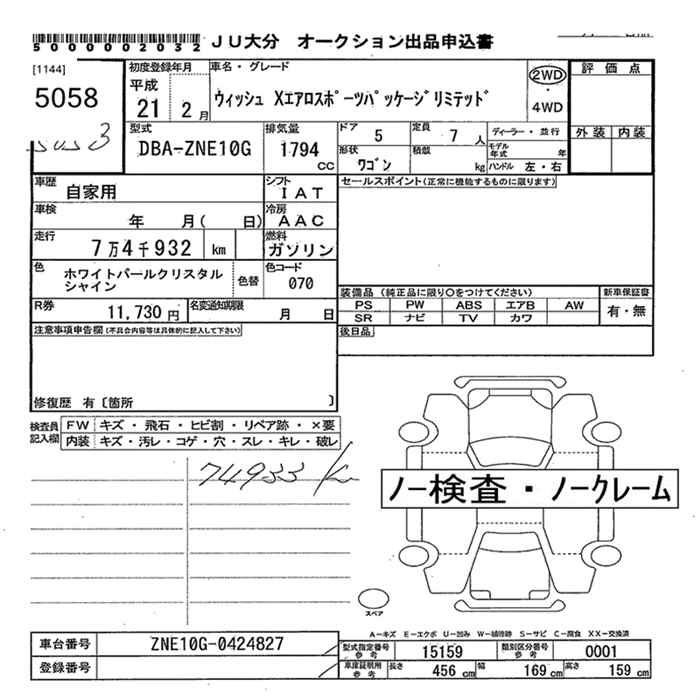 5000002032 JU大分 オークション出品申込書
[1144]
5058
初度登録年月
平成
21 2月
車名・グレード
ウィッシュ Xエアロスポーツパッケージリミテッド
2WD
・
4WD
評価点
外装 内装
型式
DBA-ZNE10G
排気量
1794
cc
ドア 5
定員 7人
ディーラー・並行
形状
ワゴン
積載
kg
モデル年式 年
ハンドル 左・右
3
車歴
自家用
シフト
IAT
セールスポイント(正常に機能するものに限ります)
車検
年 月( 日)
冷房
AAC
走行
7万4千932 km
燃料
ガソリン
色
ホワイトパールクリスタル
シャイン
色替
色コード
070
装備品(純正品に限り○をつけてください)
新車保証書
PS PW ABS エアB AW
有・無
SR ナビ TV カワ
R券
11,730円
名変通知期限
月 日
後日品
注意事項申告欄(不具合内容等は具体的に記入して下さい)
修復歴 有〔箇所 〕
検査員
記入欄
FW キズ・飛石・ヒビ割・リペア跡・×要
内装 キズ・汚レ・コゲ・穴・スレ・キレ・破レ
74933 k
ノー検査・ノークレーム
スペア
A-キズ E-エクボ U-凹み W-補修跡 S-サビ C-腐食 XX-交換済
車台番号 ZNE10G-0424827
登録番号
型式指定番号
参考
15159
類別区分番号
参考
0001
車庫証明用
参考
長さ 456 cm
幅 169 cm
高さ 159 cm